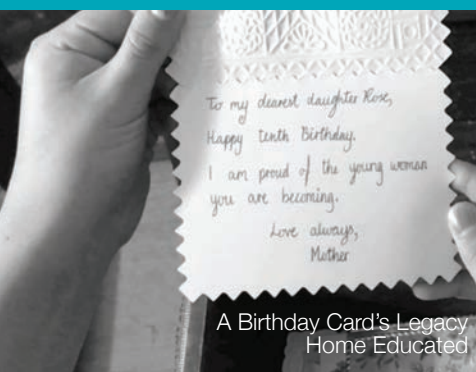 To my dearest daughter Rose,
Happy tenth Birthday.
I am proud of the young woman
you are becoming.
Love always,
Mother
A Birthday Card's Legacy
Home Educated